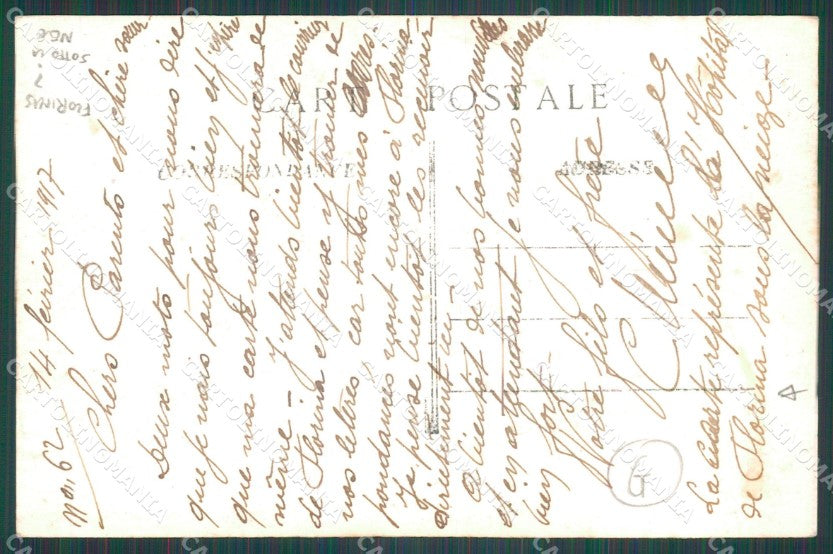 CARTE POSTALE
CORRESPONDANCE
ADRESSE
No. 62 14 février 1917
Chers Parents et chère sœur
Deux mots pour vous dire
que je vais toujours bien et j'espère
que ma carte vous trouvera de
même - J'attends bientôt le courrier
de Florina et pense y trouver de
vos lettres car toutes mes
pondances vont encore à Florina
Je pense bientôt les recevoir
directement ici
A bientôt de vos bonnes nouvelles
et en attendant je vous embrasse
bien fort
Votre fils et frère
La carte représente l'Hôpital
de Florina sous la neige -
G
FLORINAS
?
SOTTO LA
NEVE
CARTOLINOMANIA